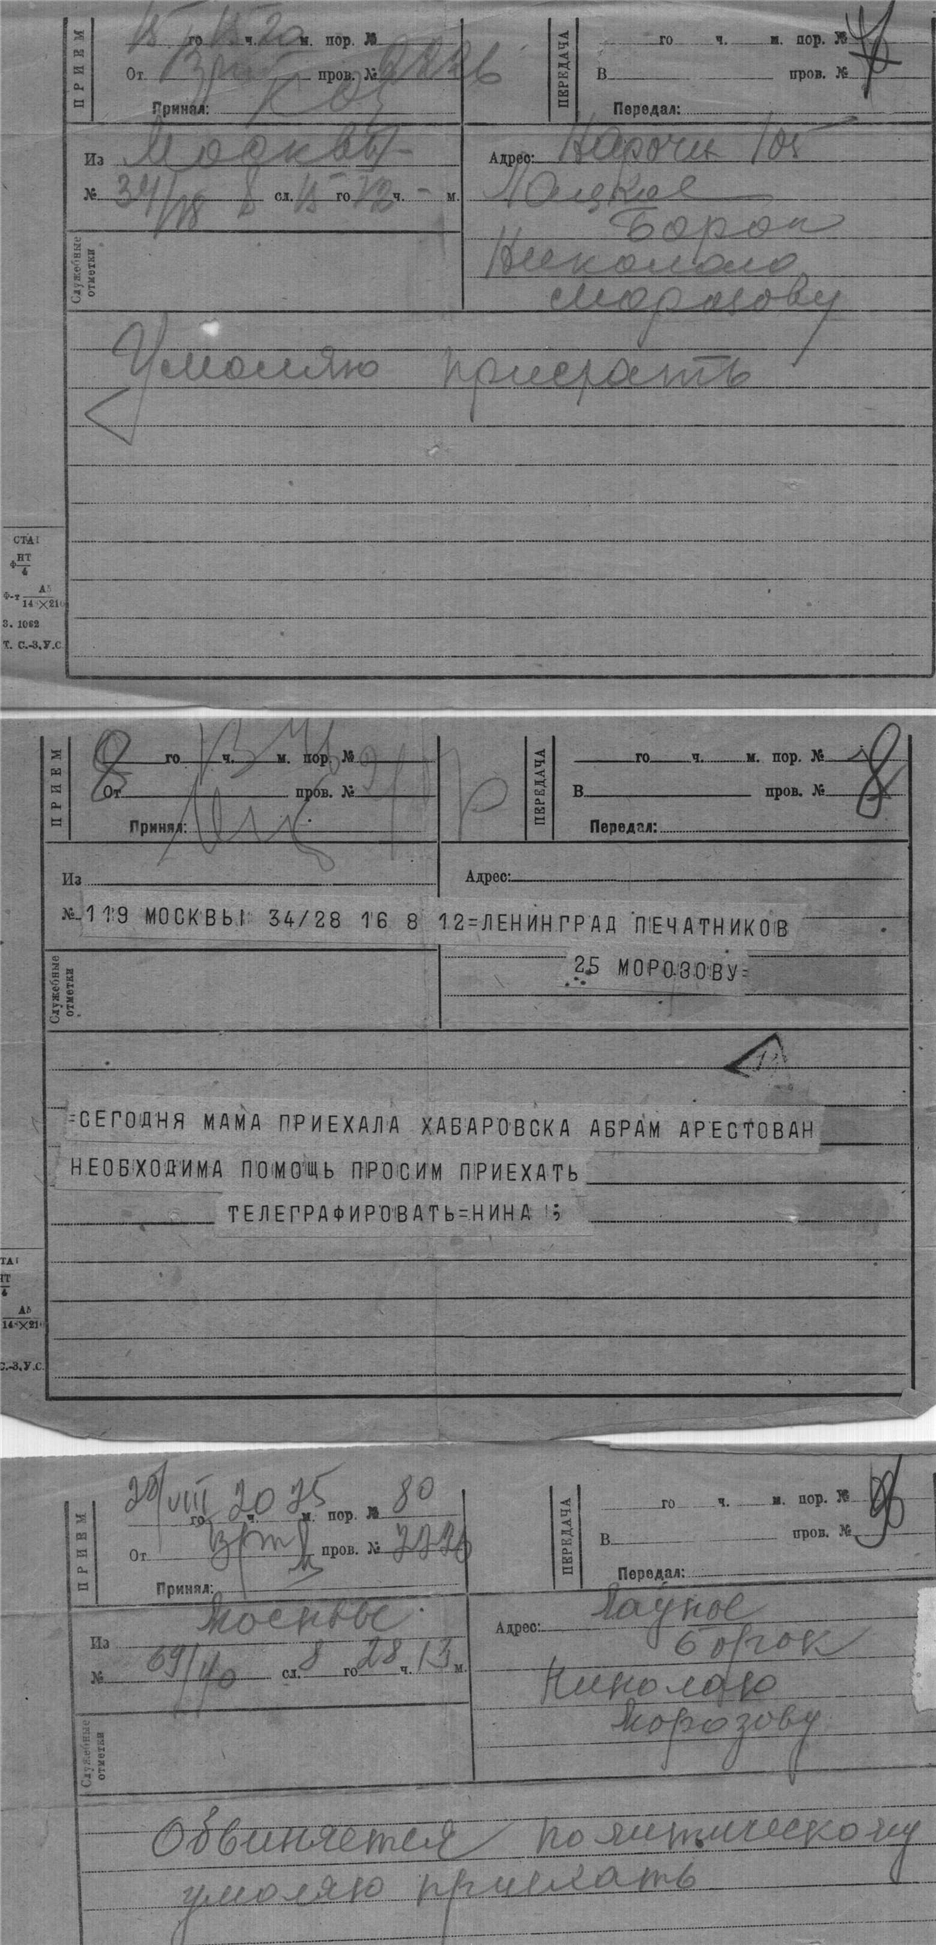 ПРИЕМ
15 го 15 ч. 20 м. пор. №
От пров. № 2226
Принял:
ПЕРЕДАЧА
го ч. м. пор. №
В пров. №
Передал:
Из Москвы
№ 34/18 8 сл. 15 го 12 ч. - м.
Служебные отметки
Адрес:
Борок
Николаю
Морозову
Умоляю приехать
СТАН
Ф НТ/4
Ф-т А5
14×21
З. 1062
Т. С.-З.У.С
ПРИЕМ
8 го ч. м. пор. №
От пров. №
Принял:
ПЕРЕДАЧА
го ч. м. пор. №
В пров. № 8
Передал:
Из
Адрес:
№ 119 МОСКВЫ 34/28 16 8 12=ЛЕНИНГРАД ПЕЧАТНИКОВ
25 МОРОЗОВУ=
Служебные отметки
=СЕГОДНЯ МАМА ПРИЕХАЛА ХАБАРОВСКА АБРАМ АРЕСТОВАН
НЕОБХОДИМА ПОМОЩЬ ПРОСИМ ПРИЕХАТЬ
ТЕЛЕГРАФИРОВАТЬ=НИНА
ТАН
НТ/4
А5
14×21
С.-З.У.С.
ПРИЕМ
28/VIII го 20 ч. 25 м. пор. № 80
От пров. № 2226
Принял:
ПЕРЕДАЧА
го ч. м. пор. №
В пров. №
Передал:
Из Москвы
№ 69/40 сл. 8 го 28 ч. 13 м.
Служебные отметки
Адрес:
Борок
Николаю
Морозову
Обвиняется политическому
умоляю приехать